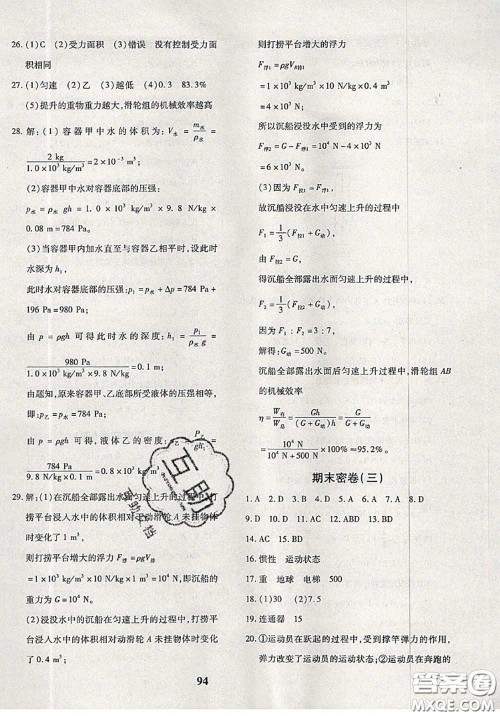 26. (1)C (2)受力面积 (3)错误 没有控制受力面
积相同
27. (1)匀速 (2)乙 (3)越低 (4)0.9 83.3%
(5)提升的重物重力越大,滑轮组的机械效率越高
28. 解:(1)容器甲中水的体积为:V水 = m水/ρ水 =
2 kg/(1.0×10³ kg/m³) = 2×10⁻³ m³;
(2)容器甲中水对容器底部的压强:
p水 = ρ水 gh = 1.0×10³ kg/m³×9.8 N/kg×
0.08 m = 784 Pa;
(3)当容器甲内加水直至与容器乙相平时,设此时
水深为 h₁,
此时水对容器底部的压强:p₁ = p水 + Δp = 784 Pa +
196 Pa = 980 Pa;
由 p = ρgh 可得此时水的深度:h₁ = p₁/ρ水g =
980 Pa/(1.0×10³ kg/m³×9.8 N/kg) = 0.1 m;
由题知,原来容器甲、乙底部所受液体的压强相
等,即
由 p = ρgh 可得,液体乙的密度:
784 Pa/ = 0.8×10³ kg/m³
29. 解:(1)在沉船全部露出水面匀速上升的过程中,打
捞平台浸入水中的体积相对动滑轮 A 未挂物体
时变化了 1 m³,
则打捞平台增大的浮力 F浮1 = ρgV排
= 1×10³ kg/m³×10 N/kg×1 m³ = 10⁴ N,即沉船的
重力为 G = 10⁴ N;
(2)在沉船浸没水中匀速上升的过程中,打捞平
台浸入水中的体积相对动滑轮 A 未挂物体时变化
了 0.4 m³;
则打捞平台增大的浮力
F浮1 = ρgV排
= 1×10³ kg/m³×10 N/kg×0.4 m³
= 4×10³ N;
所以沉船浸没水中时受到的浮力为
F浮2 = G − F浮1
= 10⁴ N − 4×10³ N
= 6×10³ N;
故沉船浸没在水中匀速上升的过程中
F₁ = 1/3(F拉1 + G动)
由 F拉2 = G
得沉船全部露出水面匀速上升的过程中,
F₂ = 1/3(F拉2 + G动)
因为 F₁ : F₂ = 3 : 7,
解得:G动 = 500 N。
沉船全部露出水面后匀速上升的过程中,滑轮组 AB
的机械效率
η = W有/W总 = Gh/(G+G动)h = G/(G+G动)
= 10⁴ N/(10⁴ N+500 N)×100% ≈ 95.2%。
期末密卷(三)
16. 惯性 运动状态
17. 重 地球 电梯 500
18. (1)30 (2)15
19. 连通器 15
20. ①运动员在跃起的过程中,受撑竿弹力的作用,
弹力改变了运动员的运动状态;②运动员在奔跑的
94
互助
互助文档
答案圈
MXQE.COM